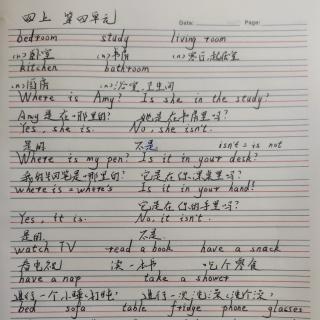 四上 第四单元
Date: Page:
bedroom study living room
(n)卧室 (n)书房 (n)客厅,起居室
kitchen bathroom
(n)厨房 (n)浴室,卫生间
Where is Amy? Is she in the study?
Amy是在哪里的? 她是在书房里吗?
Yes, she is. No, she isn't.
是的 不是 isn't = is not
Where is my pen? Is it in your desk?
我的钢笔是哪里的? 它是在你课桌里吗?
where is = where's Is it in your hand!
它是在你的手里吗?
Yes, it is. No, it isn't.
是的 不是.
watch TV read a book have a snack
看电视 读一本书 吃个零食
have a nap take a shower
进行一个小睡 进行一次洗澡
bed sofa table fridge phone glasses